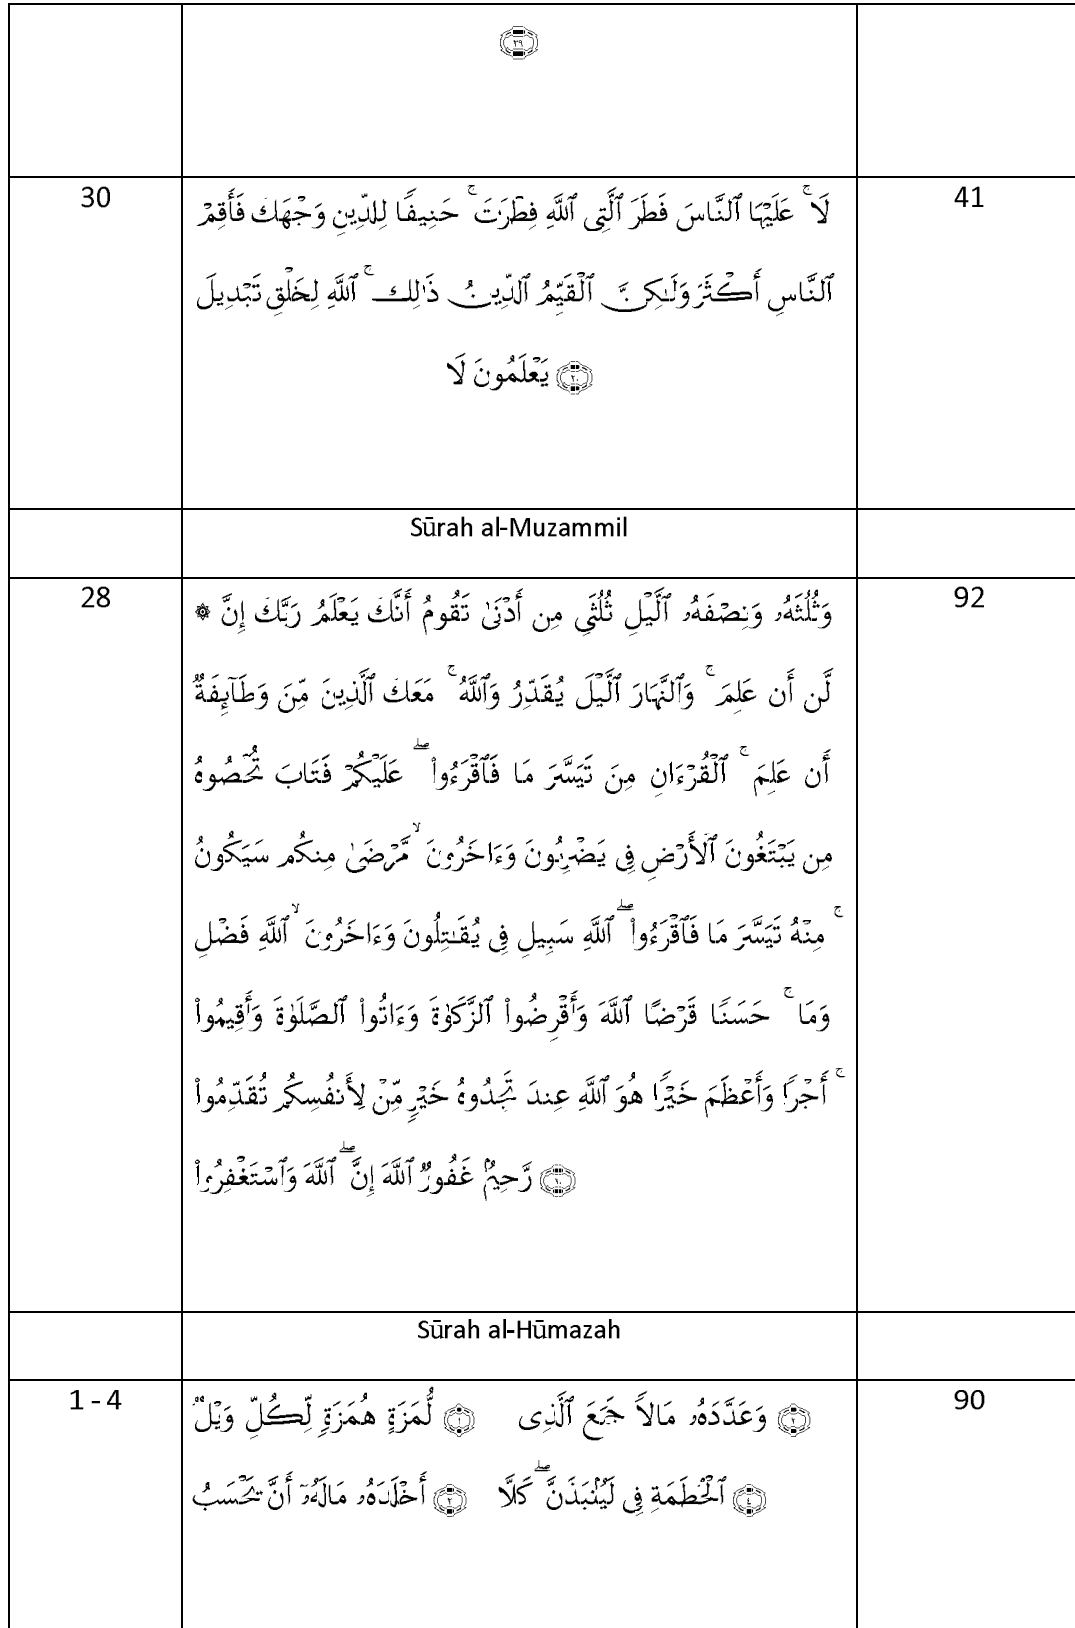 ﴿٢٩﴾
30
لَا ۚ عَلَيْهَا ٱلنَّاسَ فَطَرَ ٱلَّتِى ٱللَّهِ فِطْرَتَ ۚ حَنِيفًا لِلدِّينِ وَجْهَكَ فَأَقِمْ
41
ٱلنَّاسِ أَكْثَرَ وَلَـٰكِنَّ ٱلْقَيِّمُ ٱلدِّينُ ذَٰلِكَ ۚ ٱللَّهِ لِخَلْقِ تَبْدِيلَ
﴿٣٠﴾ يَعْلَمُونَ لَا
Sūrah al-Muzammil
28
وَثُلُثَهُۥ وَنِصْفَهُۥ ٱلَّيْلِ ثُلُثَىِ مِن أَدْنَىٰ تَقُومُ أَنَّكَ يَعْلَمُ رَبَّكَ إِنَّ ۞
92
لَّن أَن عَلِمَ ۚ وَٱلنَّهَارَ ٱلَّيْلَ يُقَدِّرُ وَٱللَّهُ ۚ مَعَكَ ٱلَّذِينَ مِّنَ وَطَآئِفَةٌ
أَن عَلِمَ ۚ ٱلْقُرْءَانِ مِنَ تَيَسَّرَ مَا فَٱقْرَءُوا۟ ۖ عَلَيْكُمْ فَتَابَ تُحْصُوهُ
مِن يَبْتَغُونَ ٱلْأَرْضِ فِى يَضْرِبُونَ وَءَاخَرُونَ ۙ مَّرْضَىٰ مِنكُم سَيَكُونُ
ۚ مِنْهُ تَيَسَّرَ مَا فَٱقْرَءُوا۟ ۖ ٱللَّهِ سَبِيلِ فِى يُقَـٰتِلُونَ وَءَاخَرُونَ ۙ ٱللَّهِ فَضْلِ
وَمَا ۚ حَسَنًا قَرْضًا ٱللَّهَ وَأَقْرِضُوا۟ ٱلزَّكَوٰةَ وَءَاتُوا۟ ٱلصَّلَوٰةَ وَأَقِيمُوا۟
ۚ أَجْرًا وَأَعْظَمَ خَيْرًا هُوَ ٱللَّهِ عِندَ تَجِدُوهُ خَيْرٍ مِّنْ لِأَنفُسِكُم تُقَدِّمُوا۟
﴿٢٠﴾ رَّحِيمٌ غَفُورٌ ٱللَّهَ إِنَّ ۖ ٱللَّهَ وَٱسْتَغْفِرُوا۟
Sūrah al-Hūmazah
1 - 4
﴿٢﴾ وَعَدَّدَهُۥ مَالًا جَمَعَ ٱلَّذِى ﴿١﴾ لُّمَزَةٍ هُمَزَةٍ لِّكُلِّ وَيْلٌ
90
﴿٤﴾ ٱلْحُطَمَةِ فِى لَيُنۢبَذَنَّ ۖ كَلَّا ﴿٣﴾ أَخْلَدَهُۥ مَالَهُۥٓ أَنَّ يَحْسَبُ